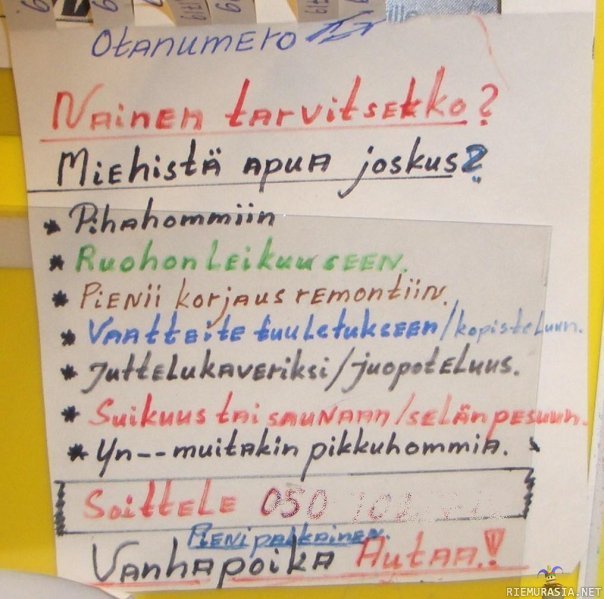 Otanumero
Nainen tarvitsekko?
Miehistä apua joskus?
* Pihahommiin
* Ruohonleikuuseen.
* Pienii korjausremontiin.
* Vaatteite tuuletukseen/kopisteluun.
* Juttelukaveriksi/juopoteluus.
* Suikuus tai saunaan/selänpesuun.
* Yn-- muitakin pikkuhommia.
Soittele 050
Pienipalkainen.
Vanhapoika Autaa!
RIEMURASIA.NET